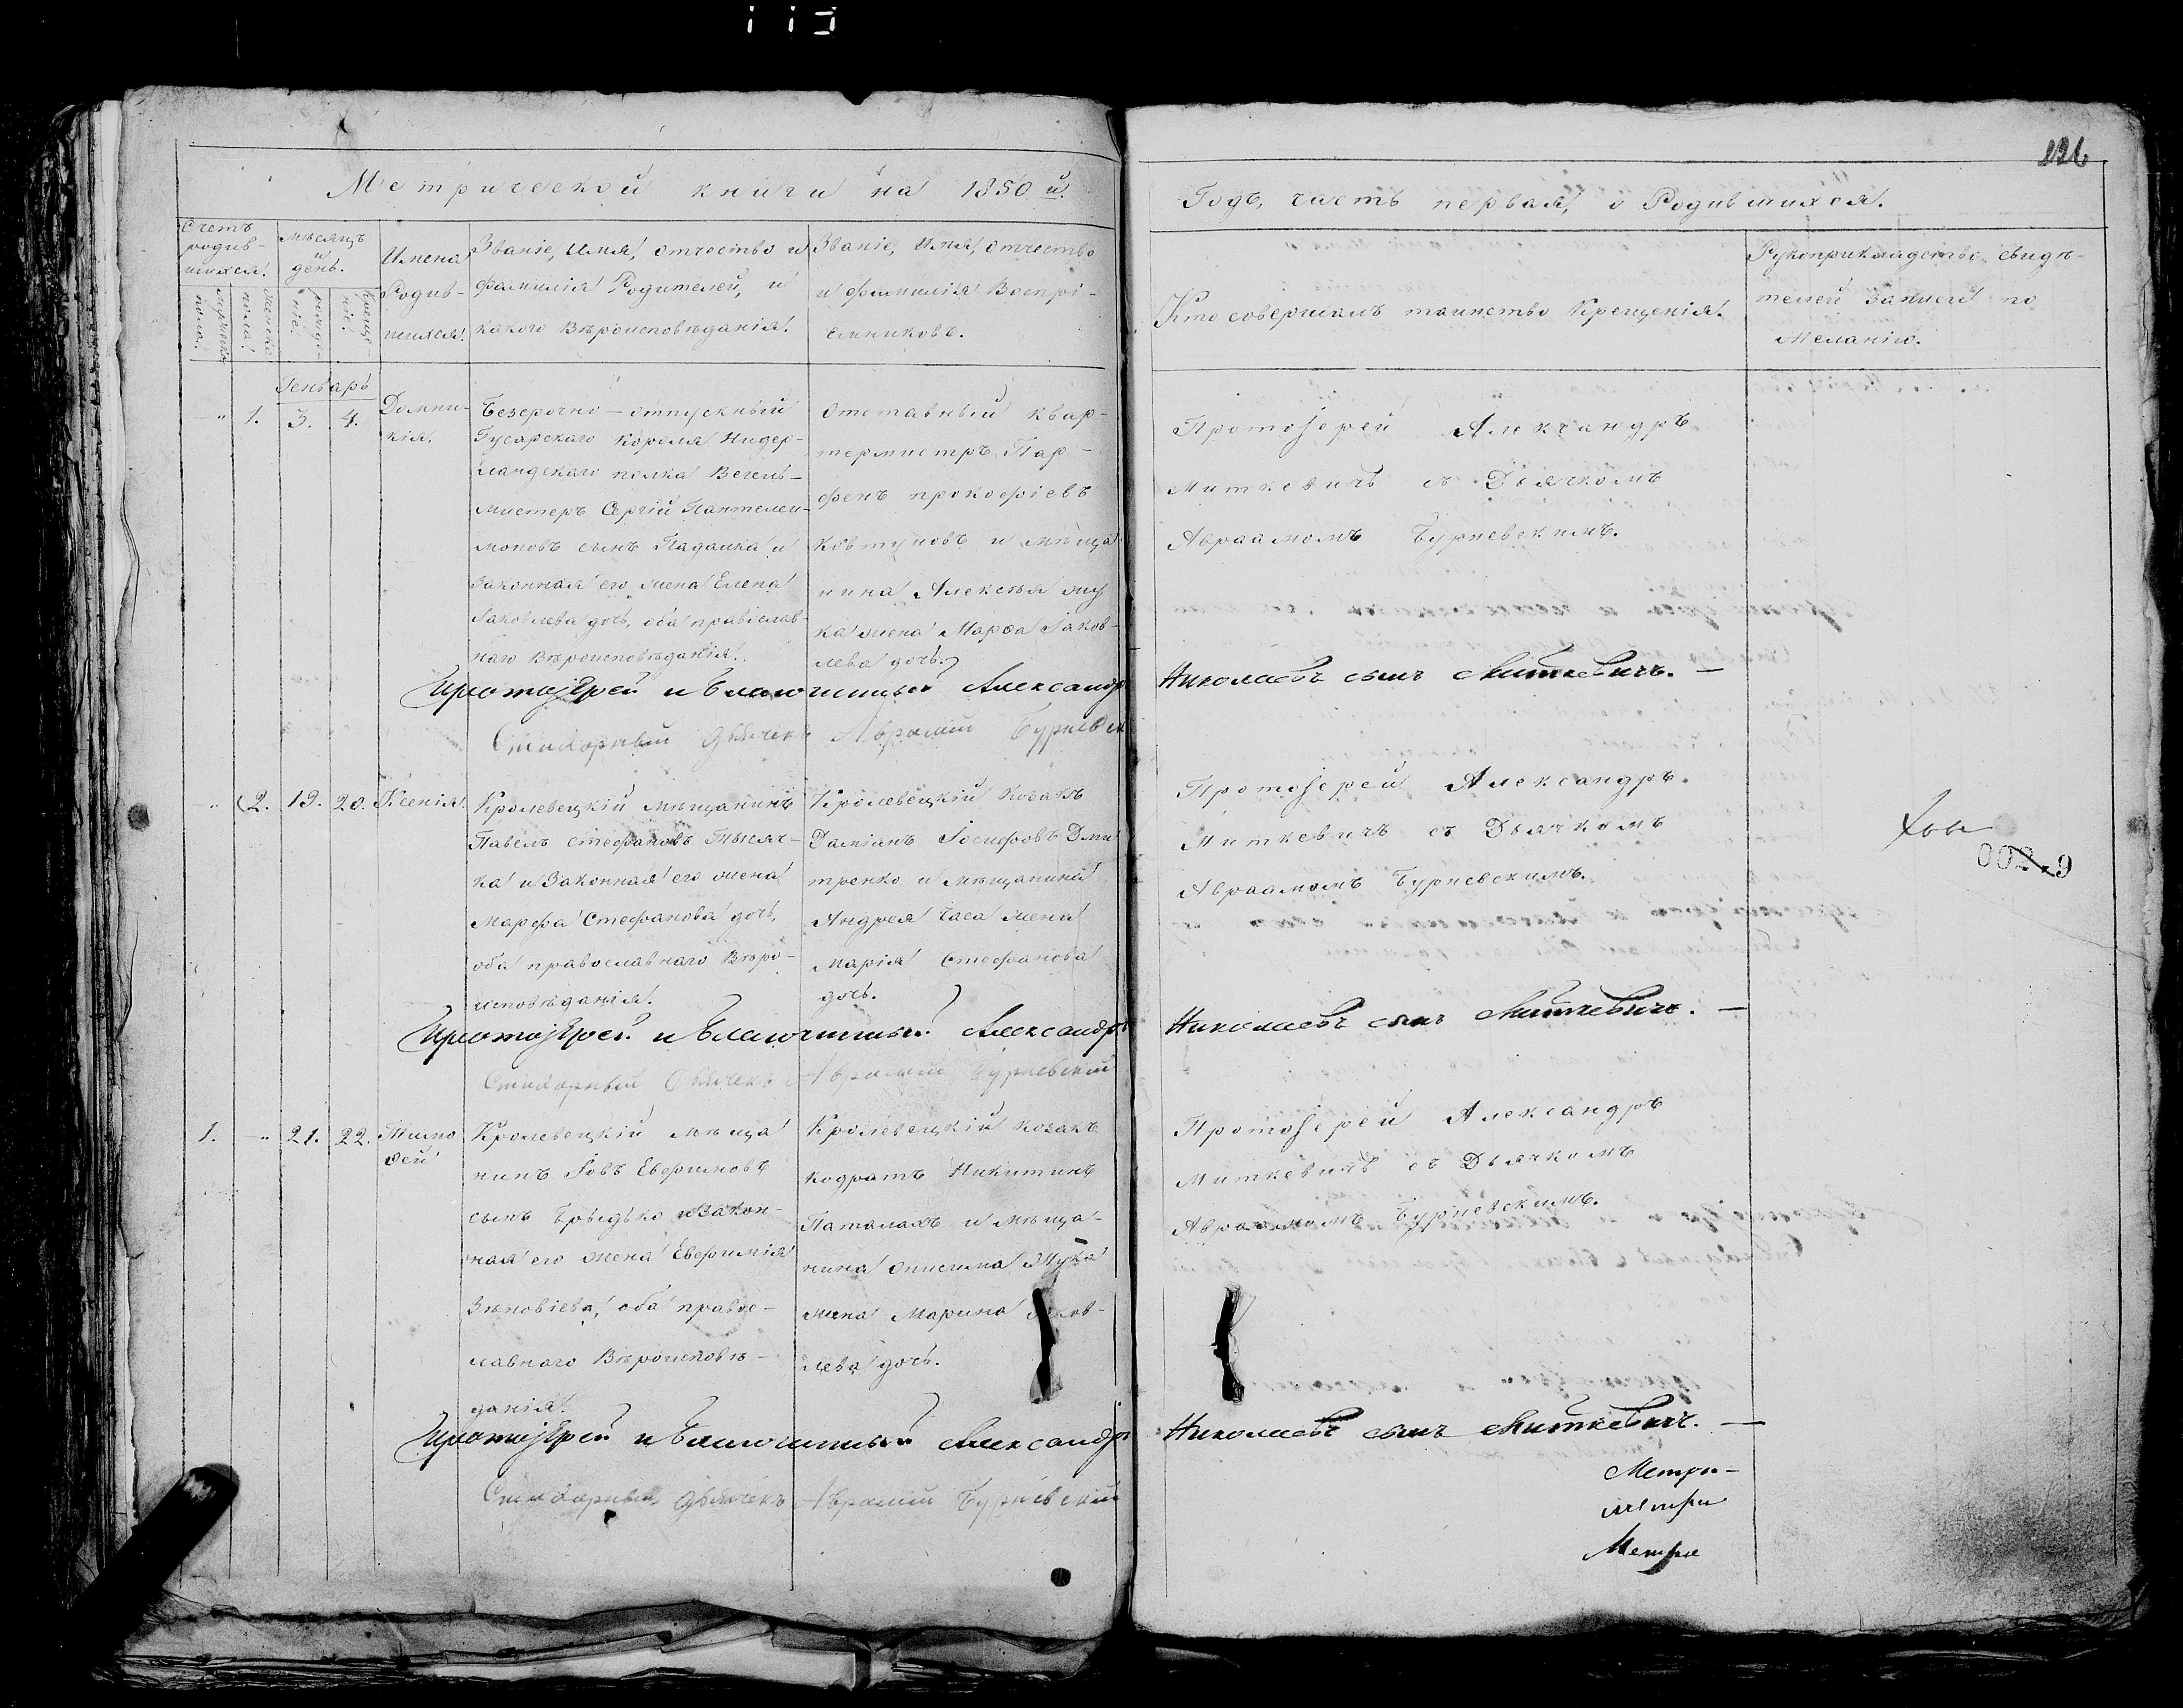 126
Метрической книги на 1850 й.
Годъ, часть первая, о Родившихся.
Счетъ
родив-
шихся.
мужеска
пола.
женска
пола.
мѣсяцъ
и
день.
рожде-
ніе.
Креще-
ніе.
Имена
Родив-
шихся.
Званіе, Имя, отчество и
фамилія Родителей, и
какого Вѣроисповѣданія.
Званіе, Имя, отчество
и фамилія Воспрі-
емниковъ.
Кто совершалъ таинство Крещенія.
Рукоприкладство свидѣ-
телей записи по
желанію.
Генварь
" 1. 3. 4.
Домни-
кія.
Безсрочно-отпускный
Гусарскаго Короля Нидер-
ландскаго полка Вегень-
мистеръ Сергій Пантелей-
моновъ сынъ Падалка и
Законная его жена Елена
Іаковлева дочь, оба православ-
наго Вѣроисповѣданія.
отставный квар-
термистръ Пар-
фенъ прокофіевъ
Ковтуновъ и мѣща
нина Алексѣя
ка жена Марѳа Іаков-
лева дочь.
Протоіерей Александръ
Миткевичъ съ Дьячкомъ
Авраамомъ Бурневскимъ.
Протоіерей и Благочинный Александръ Николаевъ сынъ Миткевичъ. —
Стихарный дьячекъ Аврамій Бурневск
" 2. 19. 20. Ксенія.
Кролевецкій мѣщанинъ
Павелъ Стефановъ Тысяч-
ка и Законная его жена
Марфа Стефанова дочь,
оба православнаго Вѣро-
исповѣданія.
Кролевецкій Козакъ
Даміанъ Іосифовъ Дми
тренко и мѣщанина
Андрея Часа жена
Марія Стефанова
дочь.
Протоіерей Александръ
Миткевичъ съ Дьячкомъ
Авраамомъ Бурневскимъ.
002-9
Протоіерей и Благочинный Александръ Николаевъ сынъ Миткевичъ. —
Стихарный дьячекъ Аврамій Бурневскій
1. " 21. 22.
Тимо
ѳей
Кролевецкій мѣща
нинъ Іовъ Евфимовъ
сынъ и закон-
ная его жена Евфимія
Зѣновіева, оба правос-
лавнаго Вѣроисповѣ-
данія.
Кролевецкій козакъ
Кодратъ Никитинъ
Паталахъ и мѣща-
нина Онисима
жена Марина Іаков-
лева дочь.
Протоіерей Александръ
Миткевичъ съ Дьячкомъ
Авраамомъ Бурневскимъ.
Протоіерей и Благочинный Александръ Николаевъ сынъ Миткевичъ. —
Стихарный дьячекъ Аврамій Бурневскій
Метри-
метри
Метри